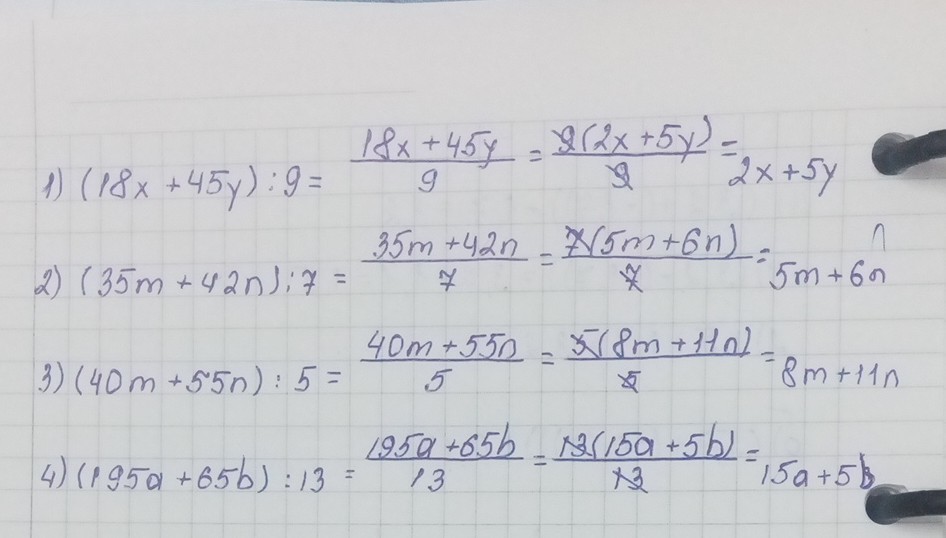 1) (18x + 45y) : 9 = (18x + 45y)/9 = 9(2x + 5y)/9 = 2x + 5y
2) (35m + 42n) : 7 = (35m + 42n)/7 = 7(5m + 6n)/7 = 5m + 6n
3) (40m + 55n) : 5 = (40m + 55n)/5 = 5(8m + 11n)/5 = 8m + 11n
4) (195a + 65b) : 13 = (195a + 65b)/13 = 13(15a + 5b)/13 = 15a + 5b